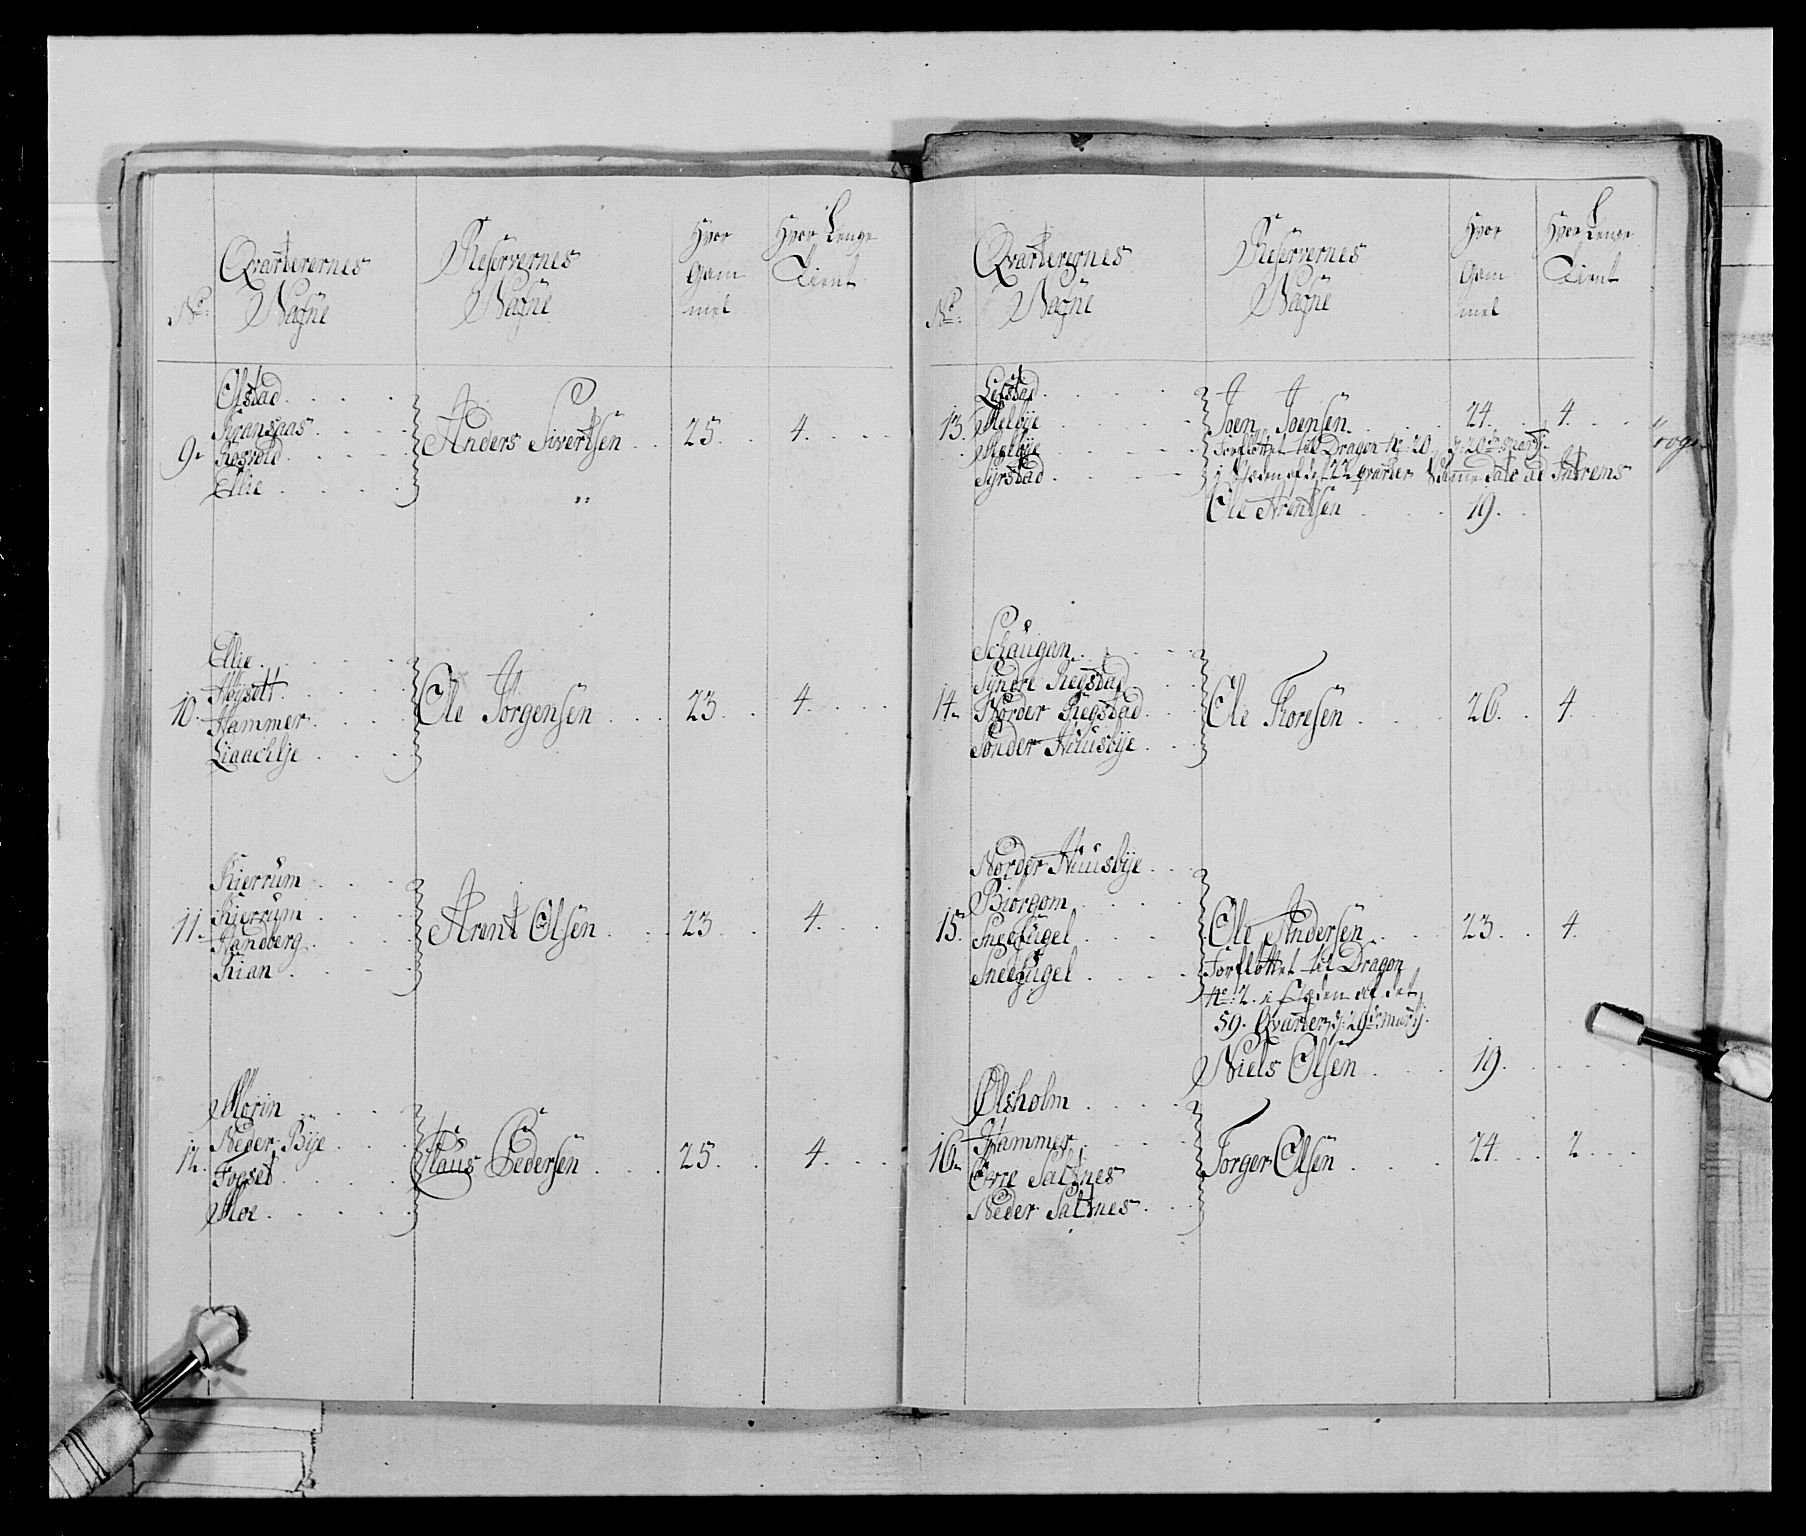 No.
Qvarterernes
Nafne
Reservernes
Nafne
Hvor
gam
mel
Hvor Lenge
Tient
9.
Olstad
Kransaas
Rosvold
Ellie
Anders Sivertsen 25. 4.
"
10.
Ellie
Høysett
Hammer
Liaachlje
Ole Jörgensen 23. 4.
11.
Kierrum
Kierrum
Randberg
Kian
Arent Olsen 23. 4.
12.
Morin
Neder Bÿe
Foeset
Moe
Claus Pedersen 25. 4.
No.
Qvarterernes
Nafne
Reservernes
Nafne
Hvor
gam
mel
Hvor Lenge
Tient
13.
Leestad
Melbÿe
Melbÿe
Sÿrstad
Joen Joensen 24. 4.
Forflÿttet til Dragon No: 20. d: 20de martj
i Steden af det 22 qvarter samme dato ad Intrems
Ole Arentsen 19.
14.
Schaugan
Sÿndre Regstad
Norder Regstad
Sönder Huusbÿe
Ole Thoresen 26. 4.
15.
Norder Huusbÿe
Biörgom
Sneefugel
Sneefugel
Ole Andersen 23. 4.
Forflöttet til Dragon
No: 2. i Stæden af det
59. Qvarter d: 29de martj.
Niels Olsen 19.
16.
Ølsholm
Hammer
Övre Saltnes
Neder Saltnes
Torger Olsen 24. 2.